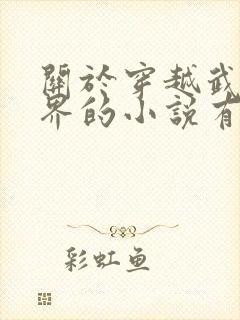 關於穿越武
界的小說有
彩虹鱼